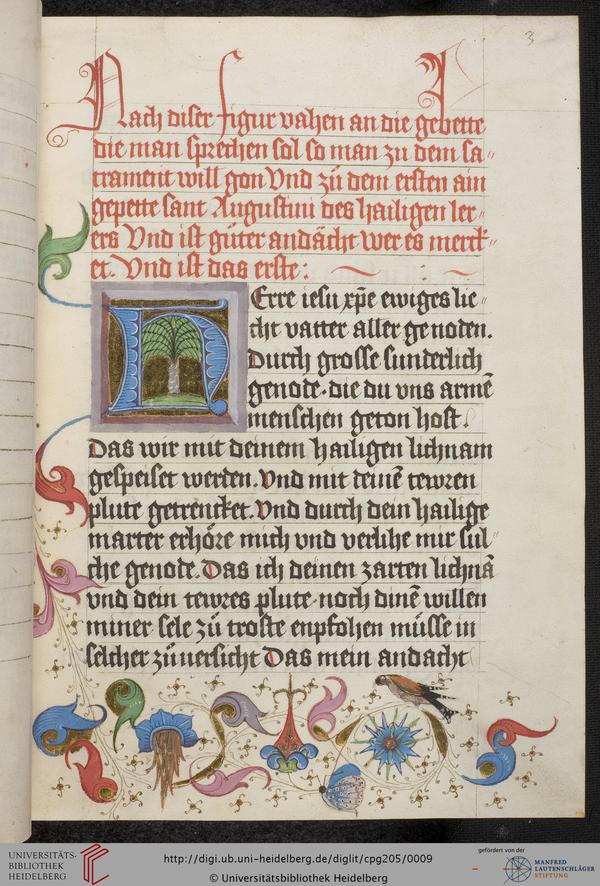 3
Nach diser figur vahen an die gebette
die man sprechen sol so man zu dem sa〃
crament will gon Vnd zů dem ersten ain
gepette sant Augustini des hailigen ler〃
ers Vnd ist gůter andächt wer es merck〃
et. Vnd ist das erste:
HErre iesu xp̄e ewiges lie〃
cht vatter aller genoden.
Durch grosse sunderlich
genode. die du vns armē
menschen geton host.
Das wir mit deinem hailigen lichnam
gespeiset werden. Vnd mit deinē tewren
plute getrencket. Vnd durch dein hailige
marter erhöre mich vnd verlihe mir sul〃
che genode. Das ich deinen zarten lichnā
vnd dein tewres plute noch dinē willen
miner sele zů troste enpfohen müsse in
selcher zůuersicht Das mein andacht
UNIVERSITÄTS-
BIBLIOTHEK
HEIDELBERG
http://digi.ub.uni-heidelberg.de/diglit/cpg205/0009
© Universitätsbibliothek Heidelberg
gefördert von der
MANFRED
LAUTENSCHLÄGER
STIFTUNG